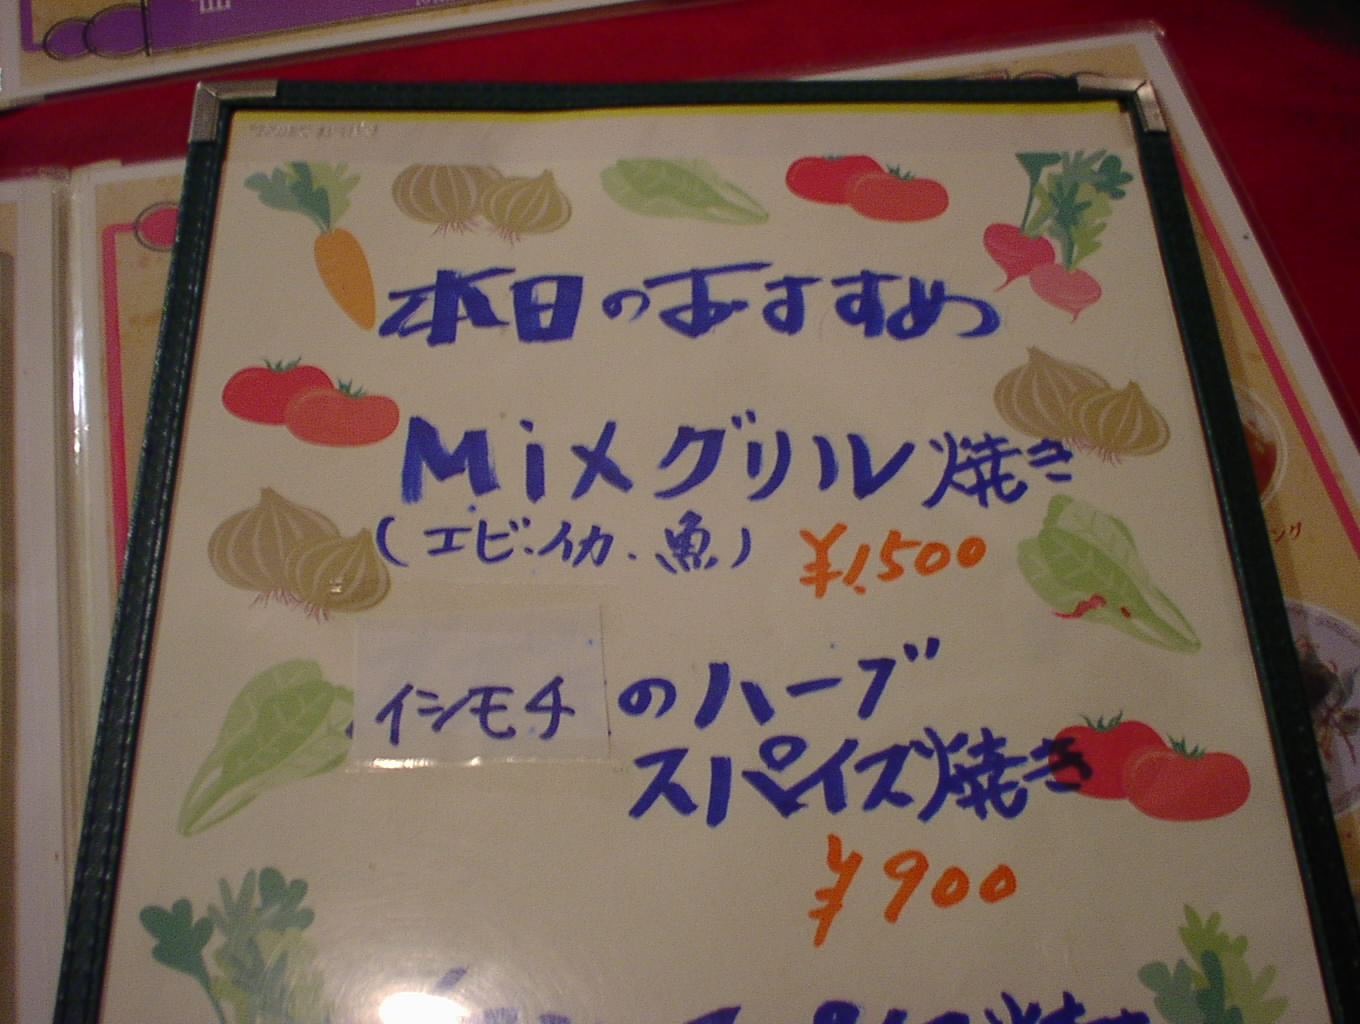 本日のおすすめ
Mixグリル焼き
(エビ・イカ・魚) ¥1,500
イシモチのハーブ
スパイス焼き
¥900